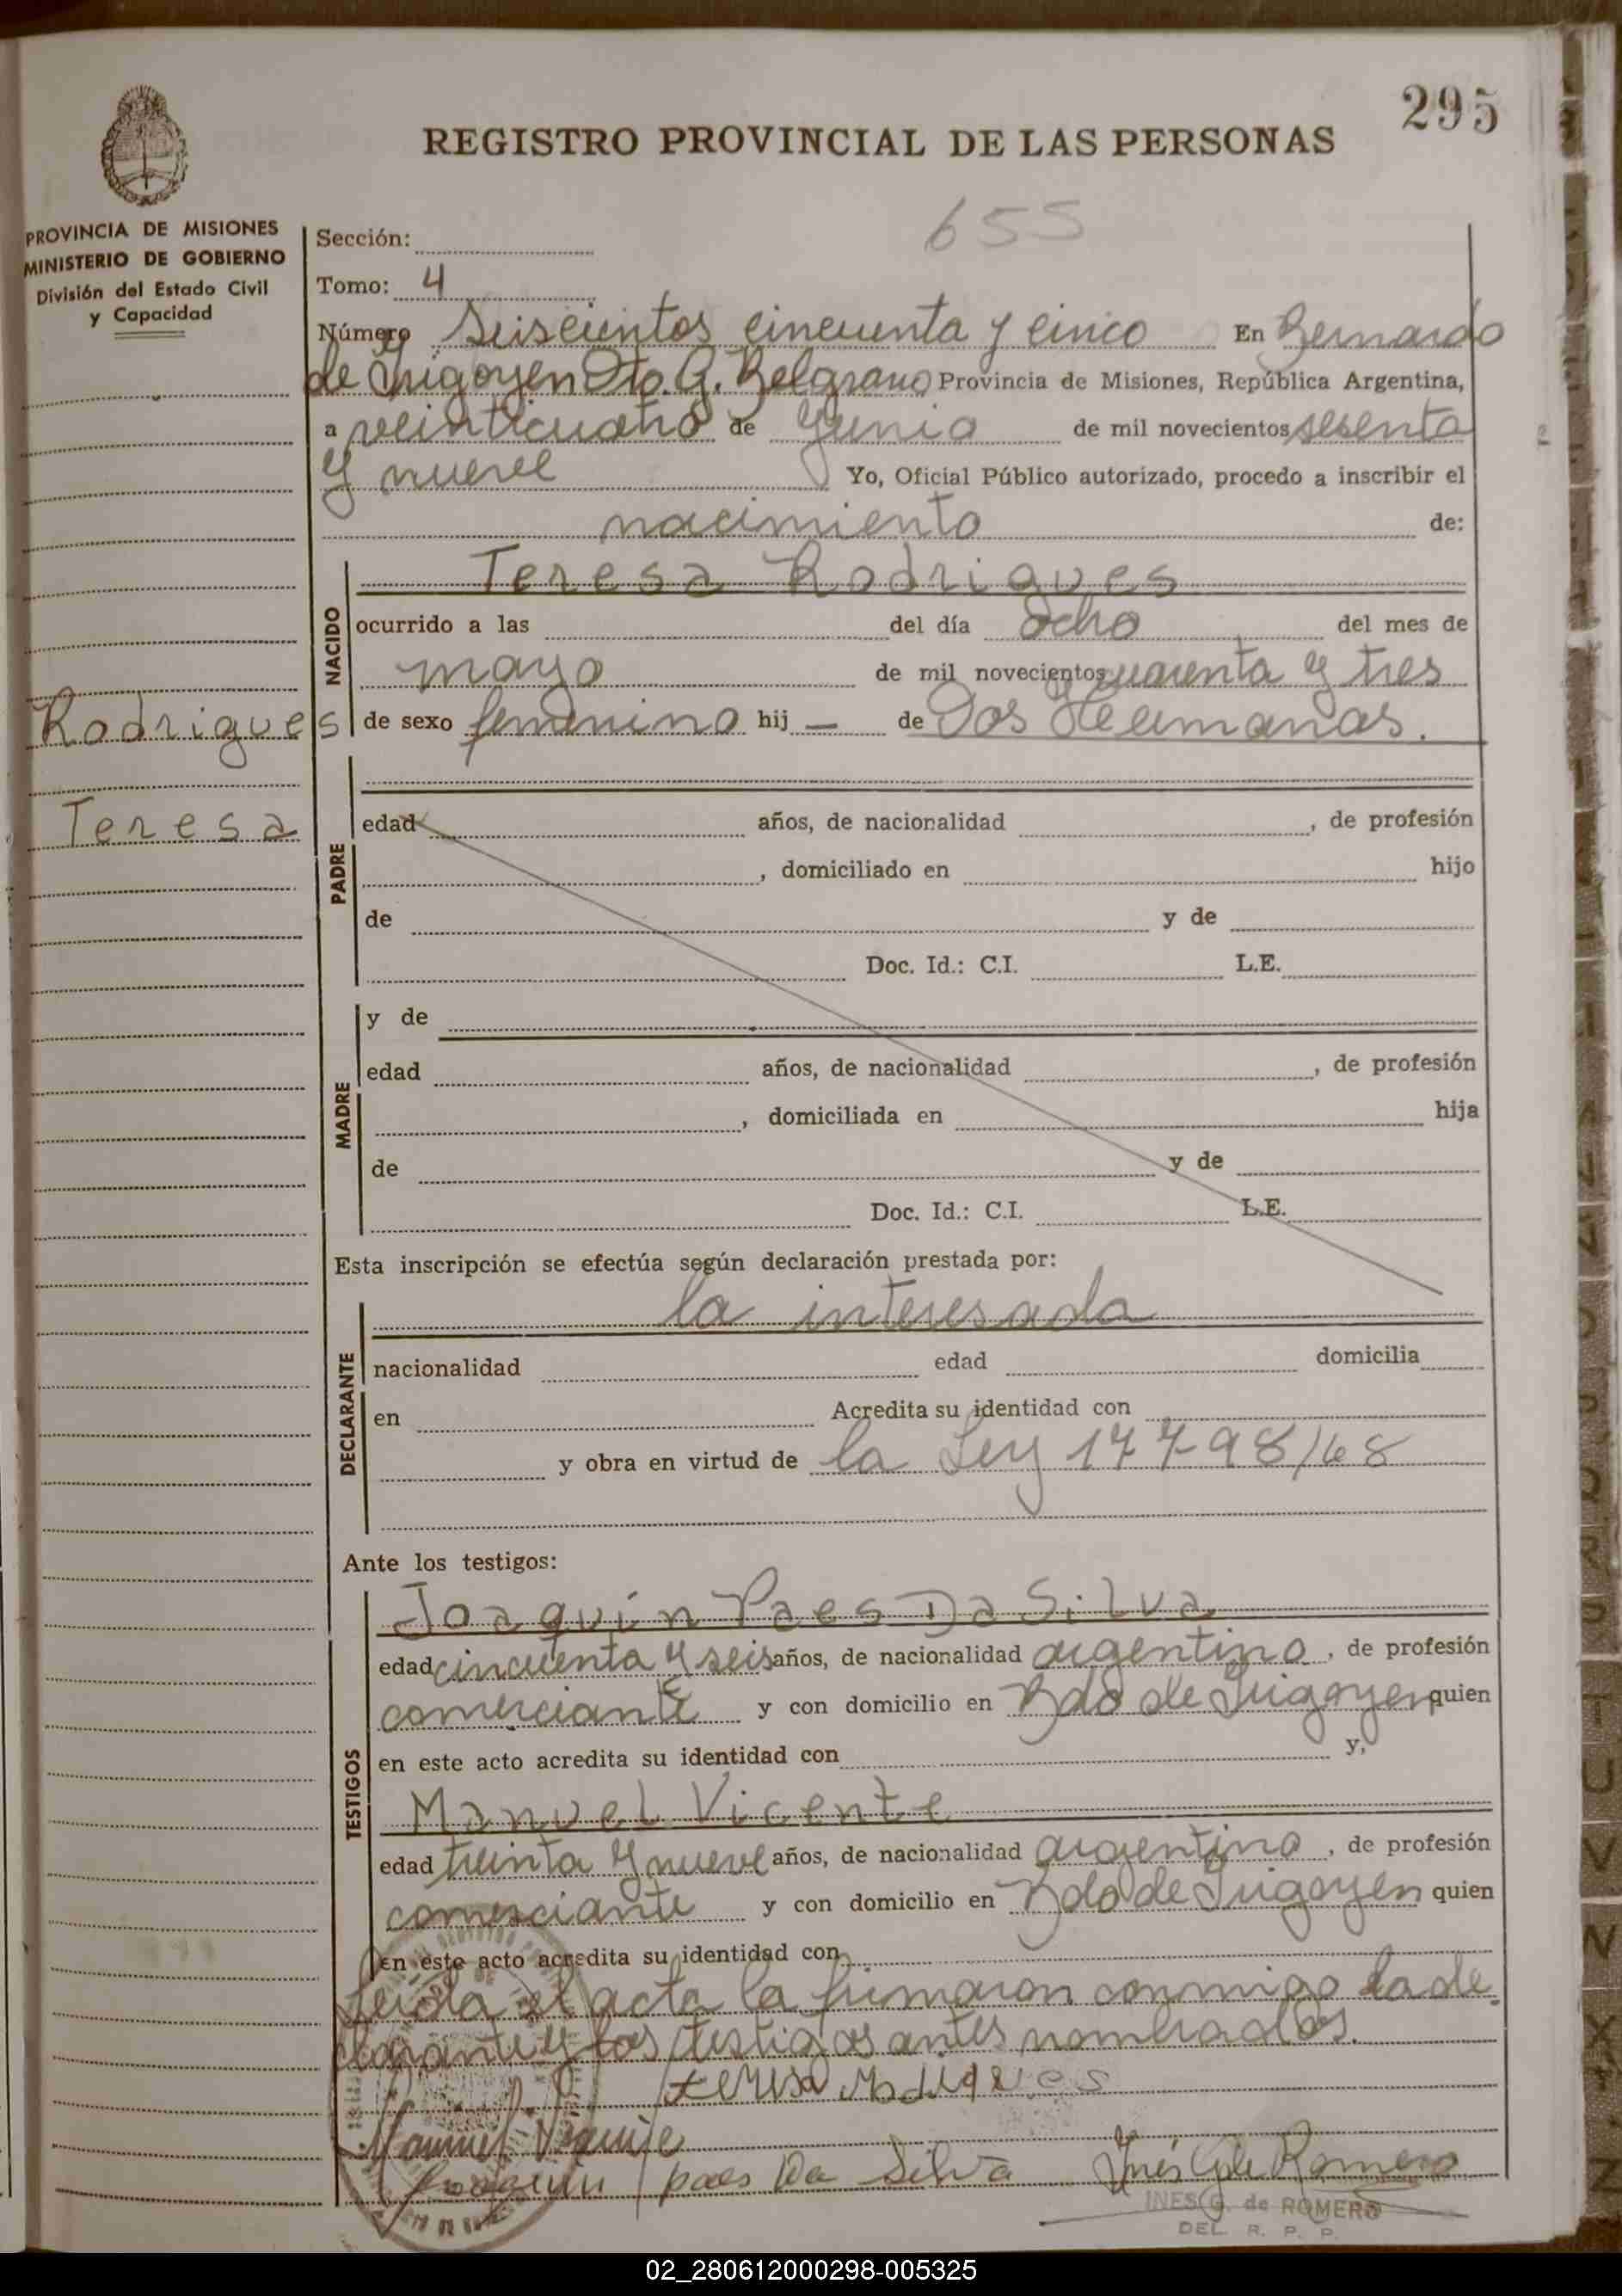 295
REGISTRO PROVINCIAL DE LAS PERSONAS
655
PROVINCIA DE MISIONES
MINISTERIO DE GOBIERNO
División del Estado Civil
y Capacidad
Sección:
Tomo: 4
Número Seiscientos cincuenta y cinco En Bernardo
de Irigoyen Dto. G. Belgrano Provincia de Misiones, República Argentina,
a veinticuatro de Junio de mil novecientos sesenta
y nueve Yo, Oficial Público autorizado, procedo a inscribir el
nacimiento de:
NACIDO
Teresa Rodrigues
ocurrido a las del día ocho del mes de
mayo de mil novecientos cuarenta y tres
Rodrigues
de sexo femenino hij — de Dos Hermanas.
Teresa
PADRE
edad años, de nacionalidad , de profesión
, domiciliado en hijo
de y de
Doc. Id.: C.I. L.E.
MADRE
y de
edad años, de nacionalidad , de profesión
, domiciliada en hija
de y de
Doc. Id.: C.I. L.E.
Esta inscripción se efectúa según declaración prestada por:
DECLARANTE
la interesada
nacionalidad edad domicilia
en Acredita su identidad con
y obra en virtud de la Ley 17798/68
Ante los testigos:
TESTIGOS
Joaquín Paes Da Silva
edad cincuenta y seis años, de nacionalidad argentino, de profesión
comerciante y con domicilio en Bdo de Irigoyen quien
en este acto acredita su identidad con y,
Manuel Vicente
edad treinta y nueve años, de nacionalidad argentino, de profesión
comerciante y con domicilio en Bdo de Irigoyen quien
en este acto acredita su identidad con
leida el acta la firmaron conmigo la de
clarante y los testigos antes nombrados.
teresa rodrigues
Manuel Vicente
Joaquin paes Da Silva Inés G de Romero
INES G. de ROMERO
DEL. R. P. P.
02_280612000298-005325